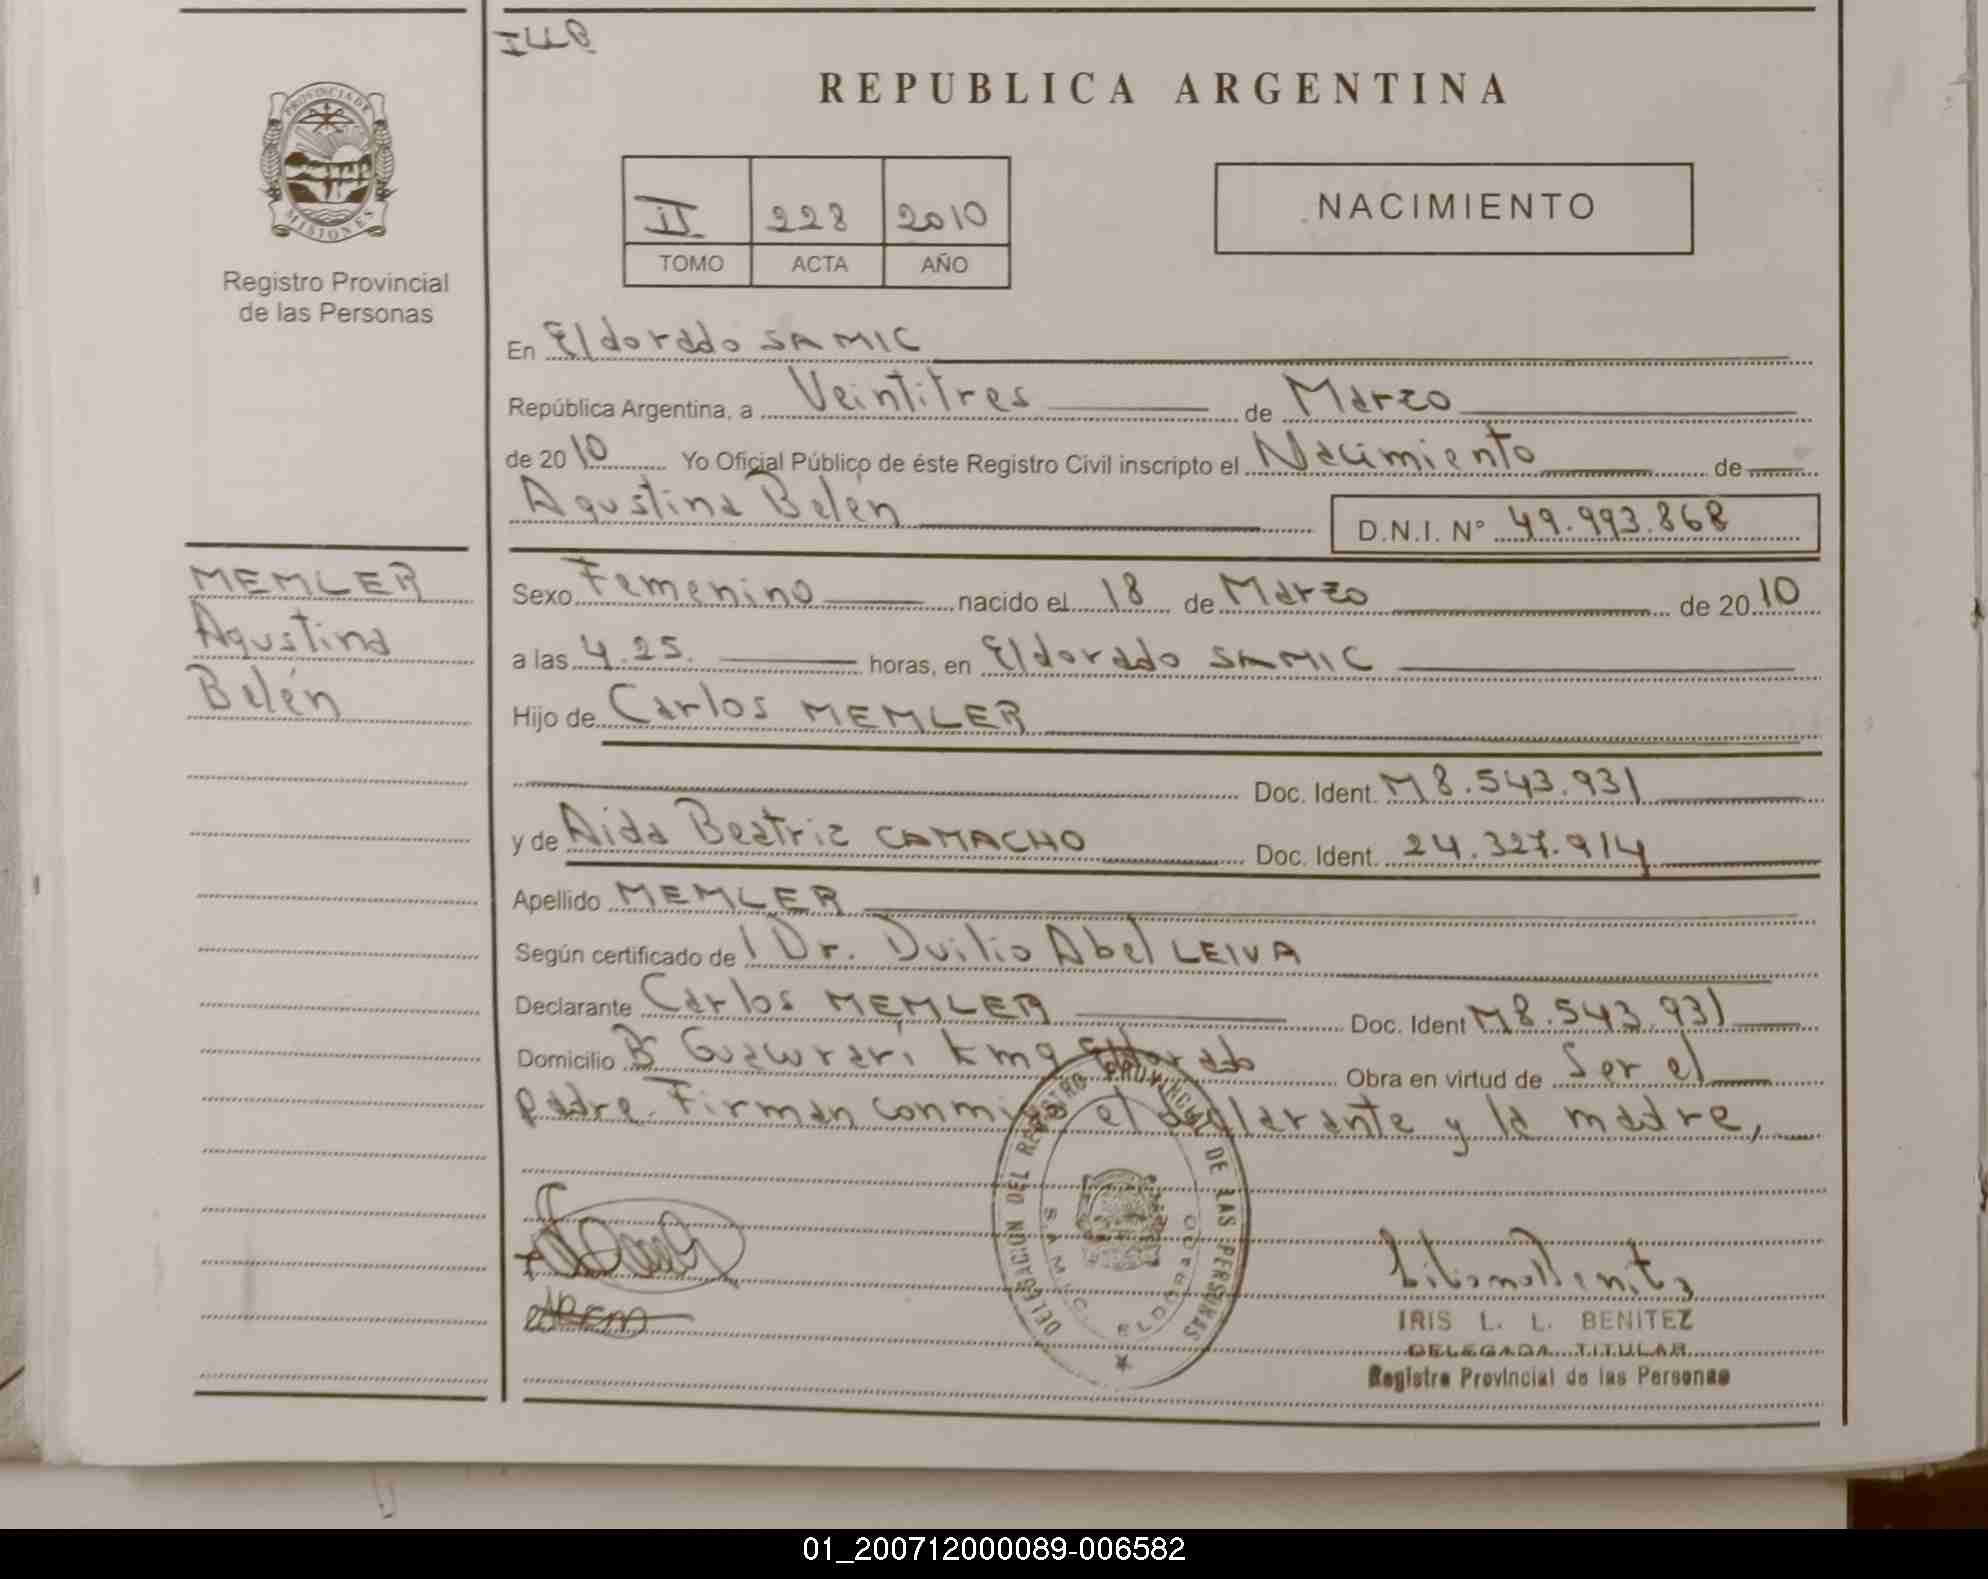 REPUBLICA ARGENTINA
PROVINCIA DE
MISIONES
Registro Provincial
de las Personas
II 228 2010
TOMO ACTA AÑO
NACIMIENTO
En Eldorado SAMIC
República Argentina, a Veintitres de Marzo
de 2010 Yo Oficial Público de éste Registro Civil inscripto el Nacimiento de
Agustina Belén D.N.I. Nº 49.993.868
MEMLER
Agustina
Belén
Sexo Femenino nacido el 18 de Marzo de 2010
a las 4.25. horas, en Eldorado SAMIC
Hijo de Carlos MEMLER
Doc. Ident. M8.543.931
y de Aida Beatriz CAMACHO Doc. Ident. 24.327.914
Apellido MEMLER
Según certificado de l Dr. Duilio Abel LEIVA
Declarante Carlos MEMLER Doc. Ident M8.543.931
Domicilio Bº Guawrari km 9 Eldorado Obra en virtud de Ser el
padre. Firman conmigo el declarante y la madre,
DELEGACION DEL REGISTRO PROVINCIAL DE LAS PERSONAS
S.A.M.I.C. ELDORADO
IRIS L. L. BENITEZ
DELEGADA TITULAR
Registro Provincial de las Personas
01_200712000089-006582